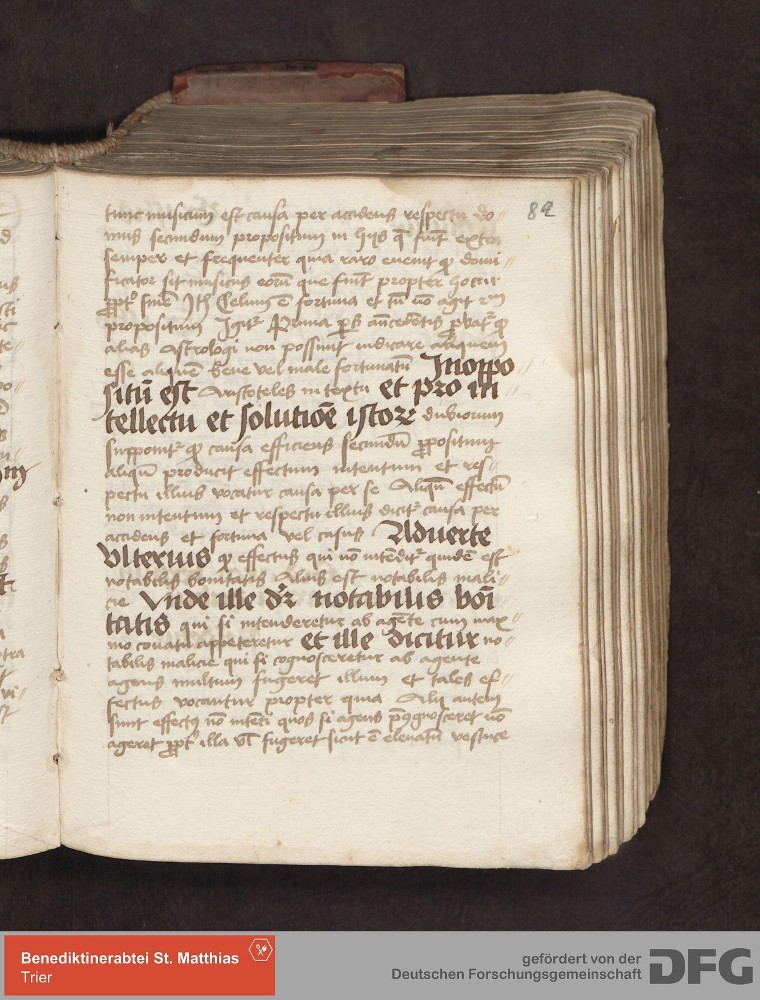 82
tunc musicum est causa per accidens respectu do
mus secundum propositum in hijs q̄ fiūt extra
semper et frequenter quia raro euenit qꝫ domi
ficator sit musicus eorū que fiūt propter hoc
Celum ē fortuna et tn̄ nō agit
propositum Igitr̄ Prima añcedentis qꝫ
alias Astrologi non possunt iudicare aliquem
esse aliquē bene vel male fortunatū Inoppo
situ est Aristoteles in textu et pro in
tellectu et solutiōe istoꝝ dubiorum
supponitr̄ qꝫ causa efficiens secundū propositum
aliquē producit effectum intentum et res
pectu illius vocatur causa per se Aliquē effectū
non intentum et respectu illius dicitr̄ causa per
accidens et fortuna vel casus Aduerte
Vlterius qꝫ effectus qui nō intēditr̄ quidē est
notabilis bonitatis Alius est notabilis mali
cie Vnde ille dr̄ notabilis boī
tatis qui si intenderetur ab agēte cum max
imo conatu appeteretur et ille dicitur no
tabilis malicie qui si cognosceretur ab agente
agens multum fugeret illum et tales ef
fectus vocantur propter quia Alij autem
sunt effectꝯ nō intēti quos si agens cognosceret nō
ageret illa vl̄ fugeret sicut ē eleuatū
Benediktinerabtei St. Matthias
Trier
gefördert von der
Deutschen Forschungsgemeinschaft
DFG